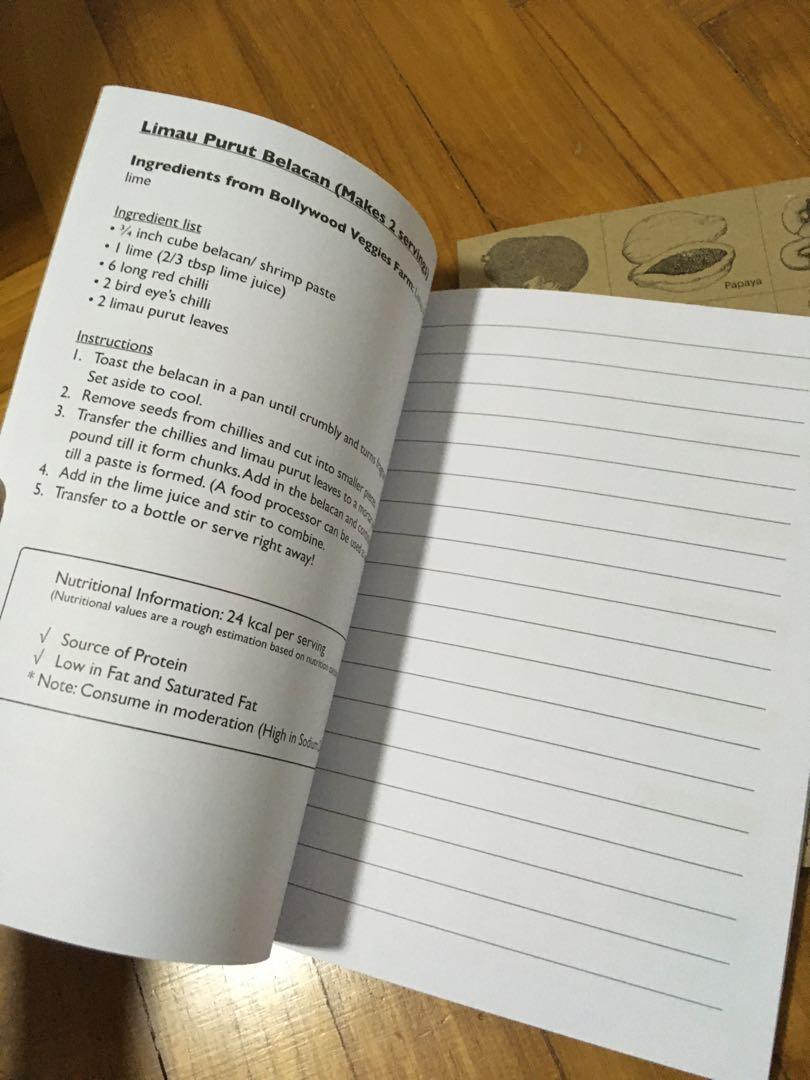 Limau Purut Belacan (Makes 2 servings)
Ingredients from Bollywood Veggies Farm:
lime
Ingredient list
• ¾ inch cube belacan/ shrimp paste
• 1 lime (2/3 tbsp lime juice)
• 6 long red chilli
• 2 bird eye's chilli
• 2 limau purut leaves
Instructions
1. Toast the belacan in a pan until crumbly and turns
Set aside to cool.
2. Remove seeds from chillies and cut into smaller
3. Transfer the chillies and limau purut leaves to a
pound till it form chunks. Add in the belacan and
till a paste is formed. (A food processor can be used
4. Add in the lime juice and stir to combine.
5. Transfer to a bottle or serve right away!
Nutritional Information: 24 kcal per serving
(Nutritional values are a rough estimation based on nutrition
√ Source of Protein
√ Low in Fat and Saturated Fat
* Note: Consume in moderation (High in Sodium
Papaya